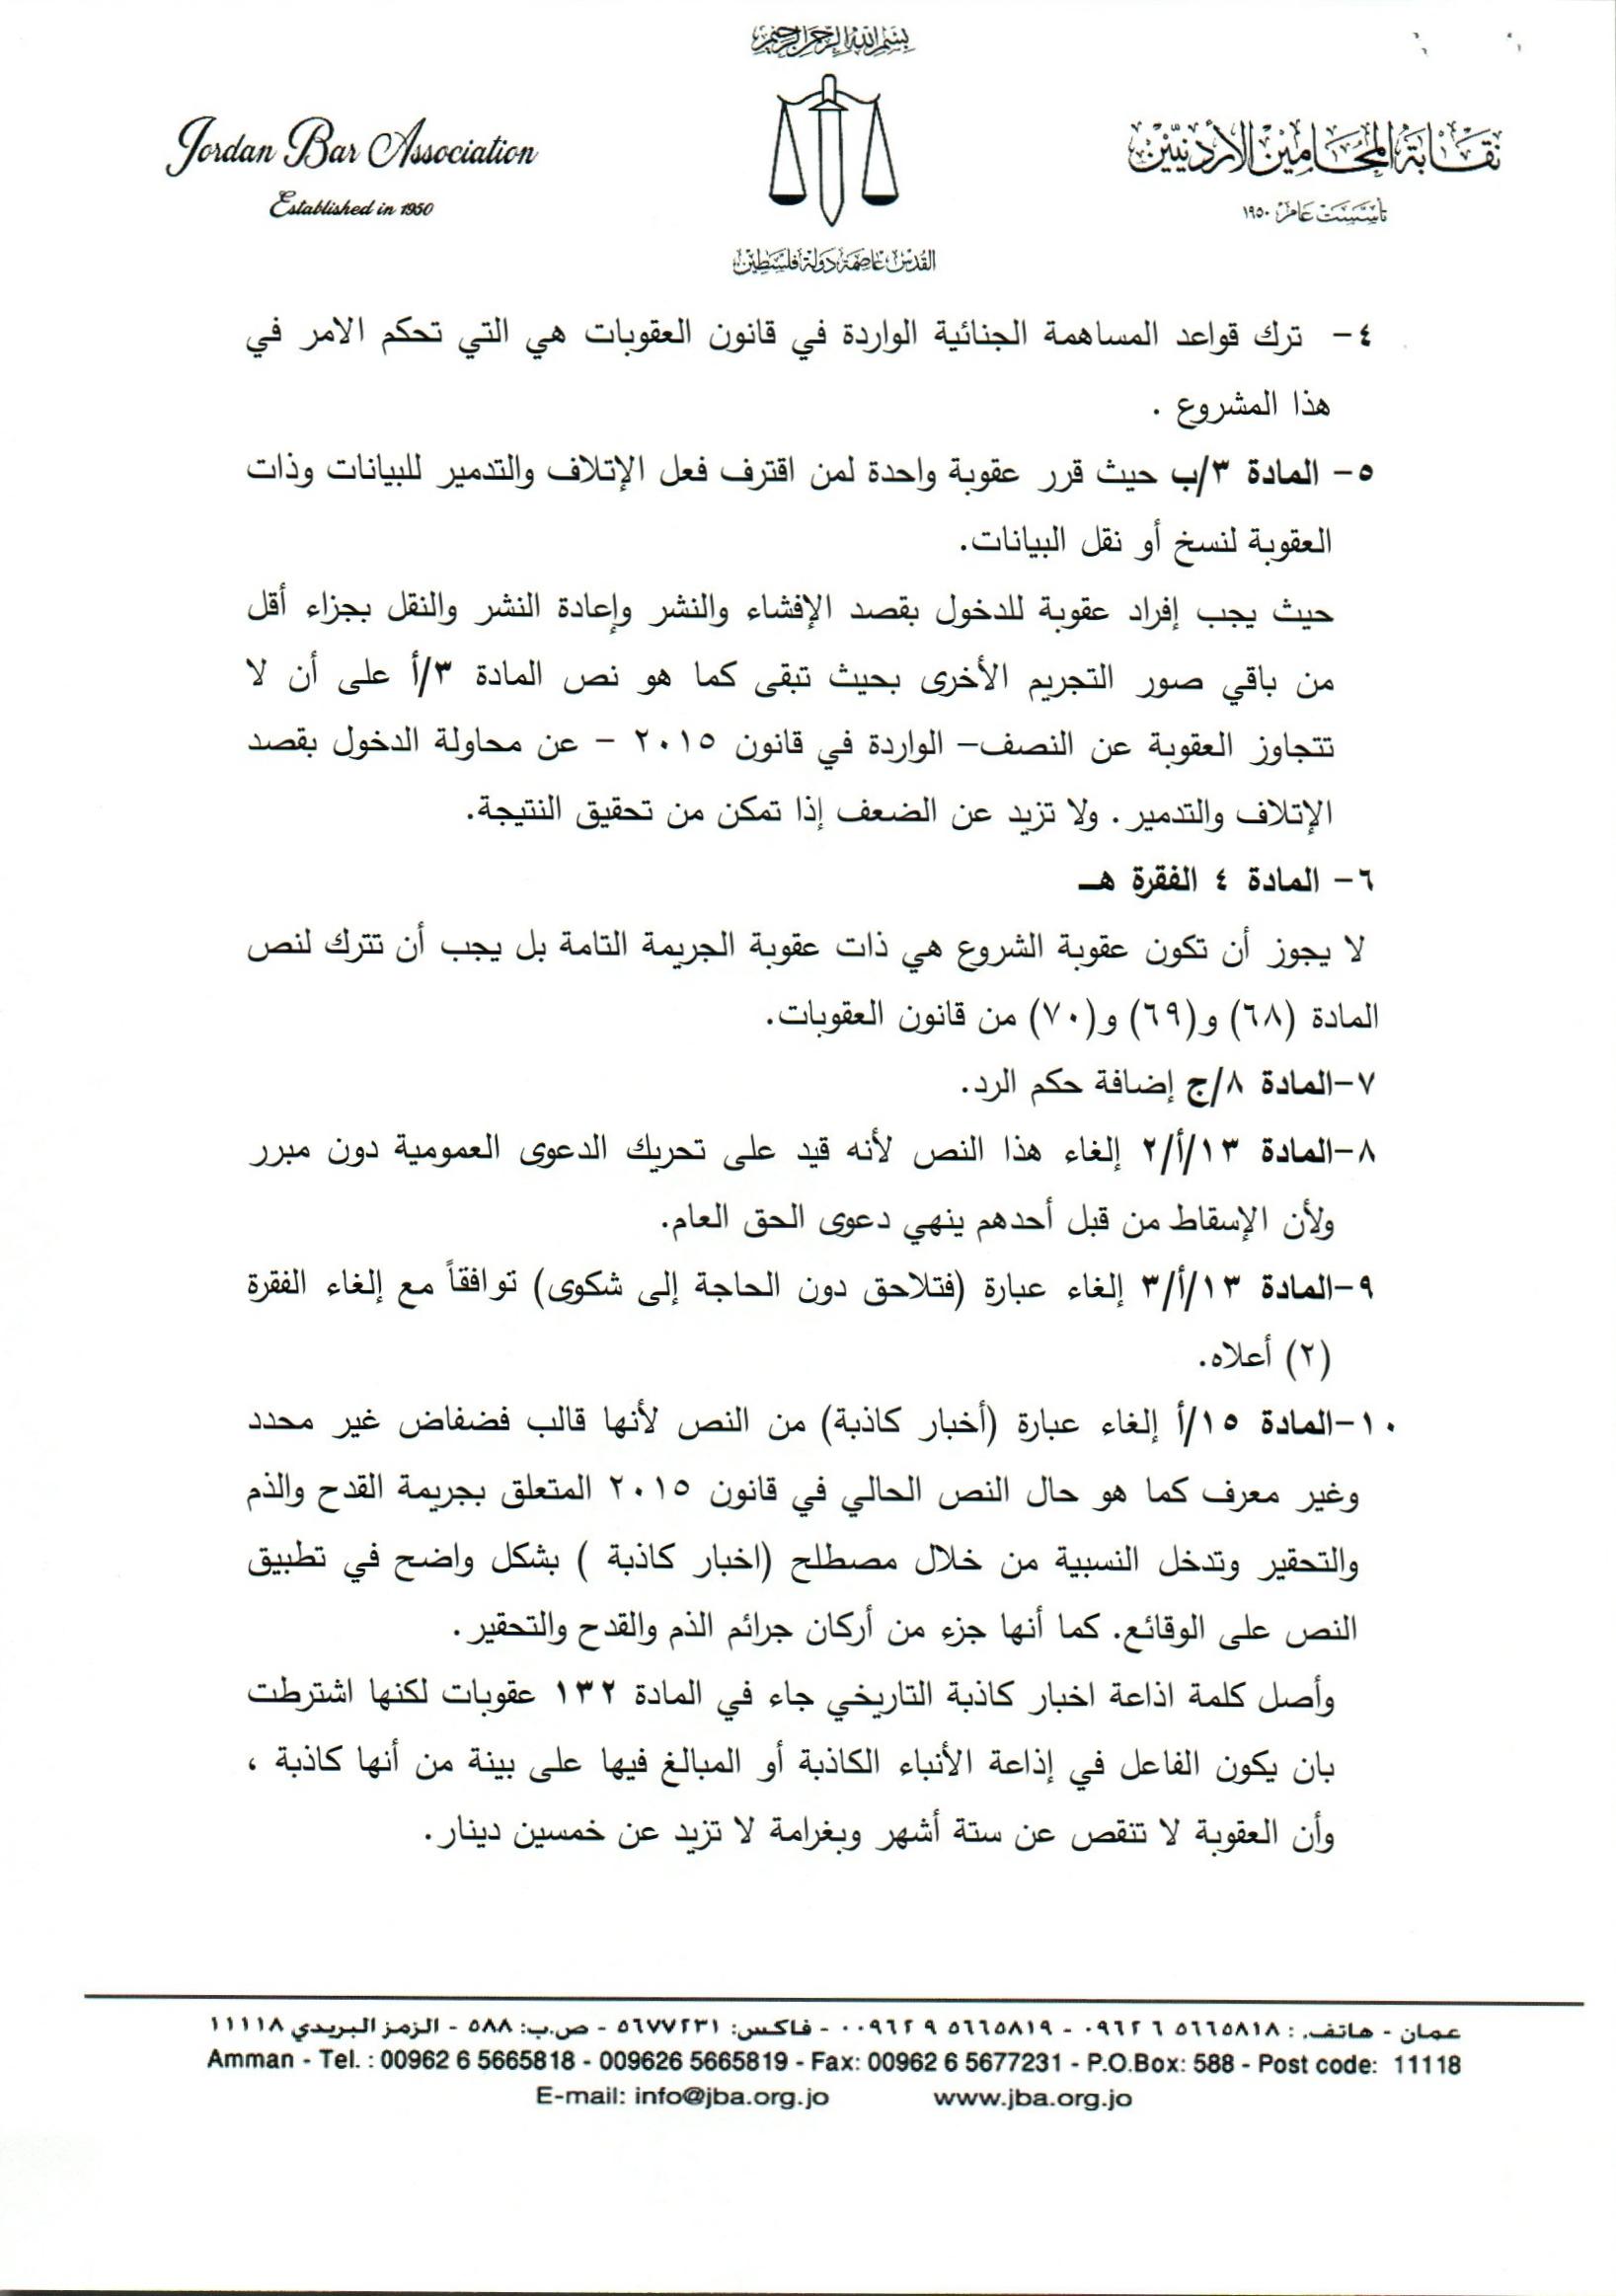 بسم الله الرحمن الرحيم
Jordan Bar Association
Established in 1950
نقابة المحامين الأردنيين
تأسست عام ١٩٥٠
القدس عاصمة دولة فلسطين
٤- ترك قواعد المساهمة الجنائية الواردة في قانون العقوبات هي التي تحكم الامر في
هذا المشروع .
٥- المادة ٣/ب حيث قرر عقوبة واحدة لمن اقترف فعل الإتلاف والتدمير للبيانات وذات
العقوبة لنسخ أو نقل البيانات.
حيث يجب إفراد عقوبة للدخول بقصد الإفشاء والنشر وإعادة النشر والنقل بجزاء أقل
من باقي صور التجريم الأخرى بحيث تبقى كما هو نص المادة ٣/أ على أن لا
تتجاوز العقوبة عن النصف– الواردة في قانون ٢٠١٥ – عن محاولة الدخول بقصد
الإتلاف والتدمير. ولا تزيد عن الضعف إذا تمكن من تحقيق النتيجة.
٦- المادة ٤ الفقرة هـ
لا يجوز أن تكون عقوبة الشروع هي ذات عقوبة الجريمة التامة بل يجب أن تترك لنص
المادة (٦٨) و(٦٩) و(٧٠) من قانون العقوبات.
٧-المادة ٨/ج إضافة حكم الرد.
٨-المادة ١٣/أ/٢ إلغاء هذا النص لأنه قيد على تحريك الدعوى العمومية دون مبرر
ولأن الإسقاط من قبل أحدهم ينهي دعوى الحق العام.
٩-المادة ١٣/أ/٣ إلغاء عبارة (فتلاحق دون الحاجة إلى شكوى) توافقاً مع إلغاء الفقرة
(٢) أعلاه.
١٠-المادة ١٥/أ إلغاء عبارة (أخبار كاذبة) من النص لأنها قالب فضفاض غير محدد
وغير معرف كما هو حال النص الحالي في قانون ٢٠١٥ المتعلق بجريمة القدح والذم
والتحقير وتدخل النسبية من خلال مصطلح (اخبار كاذبة ) بشكل واضح في تطبيق
النص على الوقائع. كما أنها جزء من أركان جرائم الذم والقدح والتحقير.
وأصل كلمة اذاعة اخبار كاذبة التاريخي جاء في المادة ١٣٢ عقوبات لكنها اشترطت
بان يكون الفاعل في إذاعة الأنباء الكاذبة أو المبالغ فيها على بينة من أنها كاذبة ،
وأن العقوبة لا تنقص عن ستة أشهر وبغرامة لا تزيد عن خمسين دينار.
عمان - هاتف. : ٥٦٦٥٨١٨ ٦ ٠٩٦٢ - ٥٦٦٥٨١٩ ٩ ٠٠٩٦٢ - فاكس: ٥٦٧٧٢٣١ - ص.ب: ٥٨٨ - الرمز البريدي ١١١١٨
Amman - Tel. : 00962 6 5665818 - 009626 5665819 - Fax: 00962 6 5677231 - P.O.Box: 588 - Post code: 11118
E-mail: info@jba.org.jo www.jba.org.jo